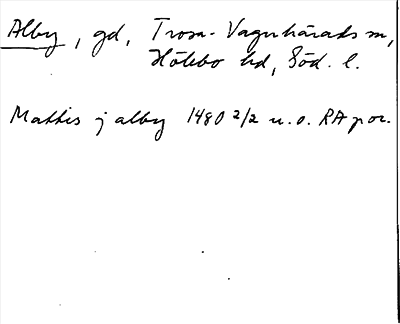 Alby, gd, Trosa-Vagnhärads sn,
Hölebo hd, Söd. l.
Mattis j alby 1480 2/2 u. o. RA p or.